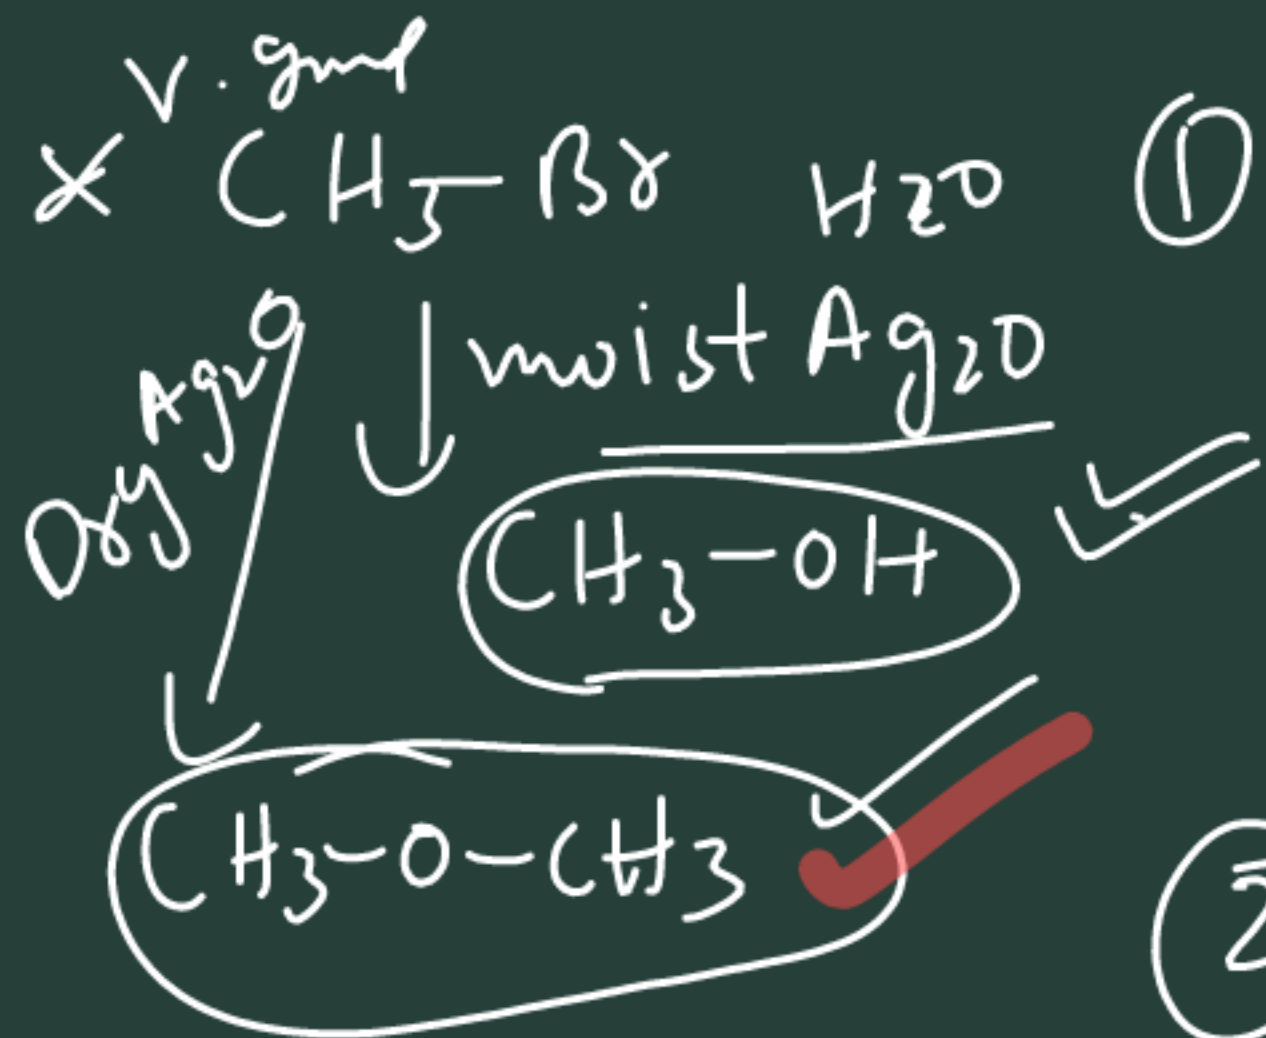 V. good
× CH3-Br H2O ①
Dry Ag2O
moist Ag2O
CH3-OH
CH3-O-CH3
2